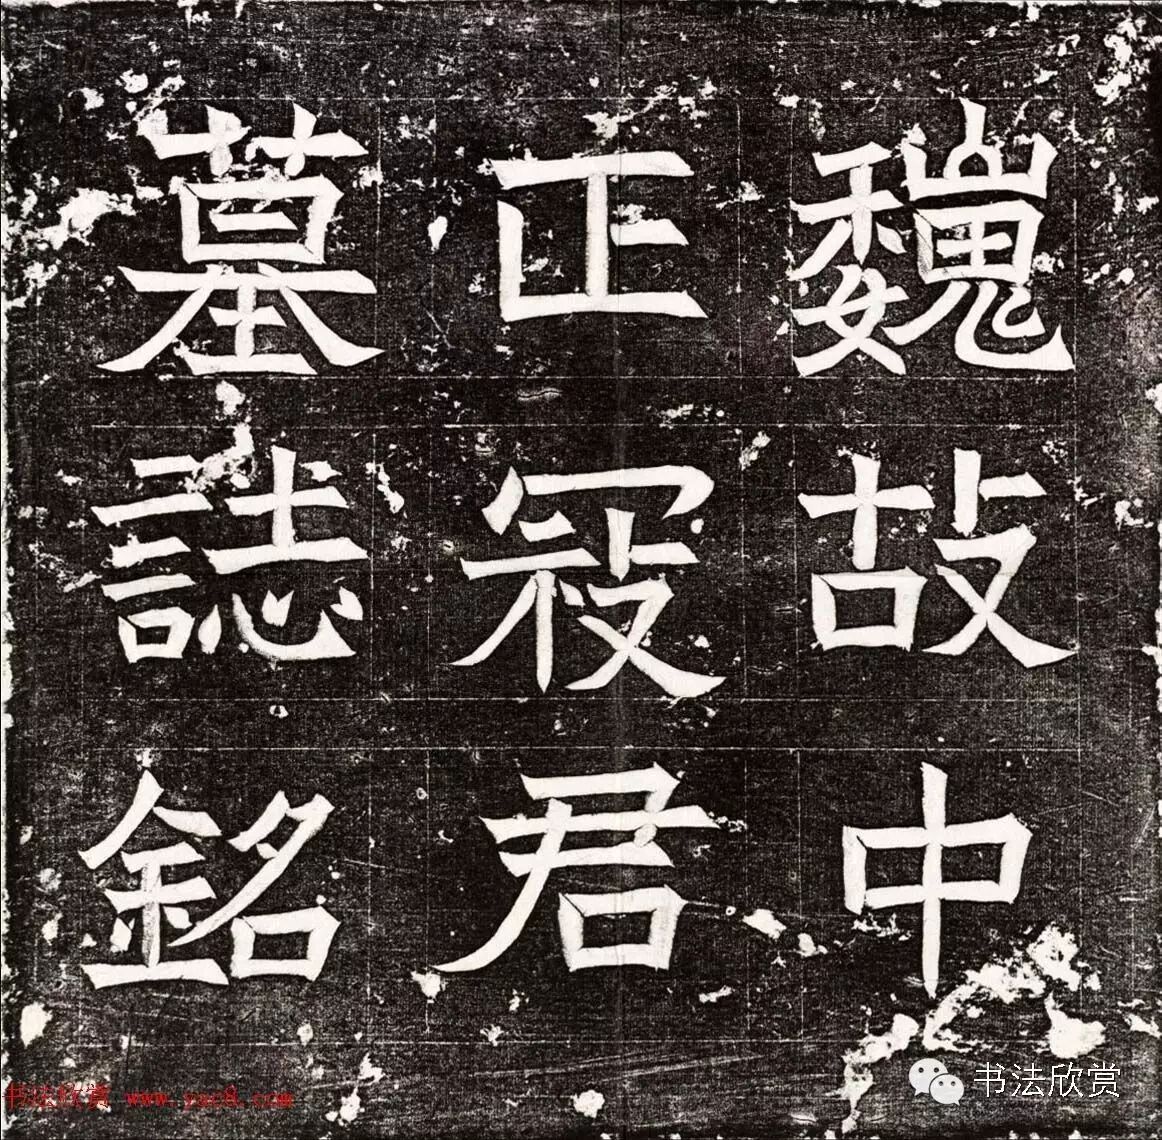 魏故中
正寇君
墓誌銘
书法欣赏 www.yac8.com
书法欣赏